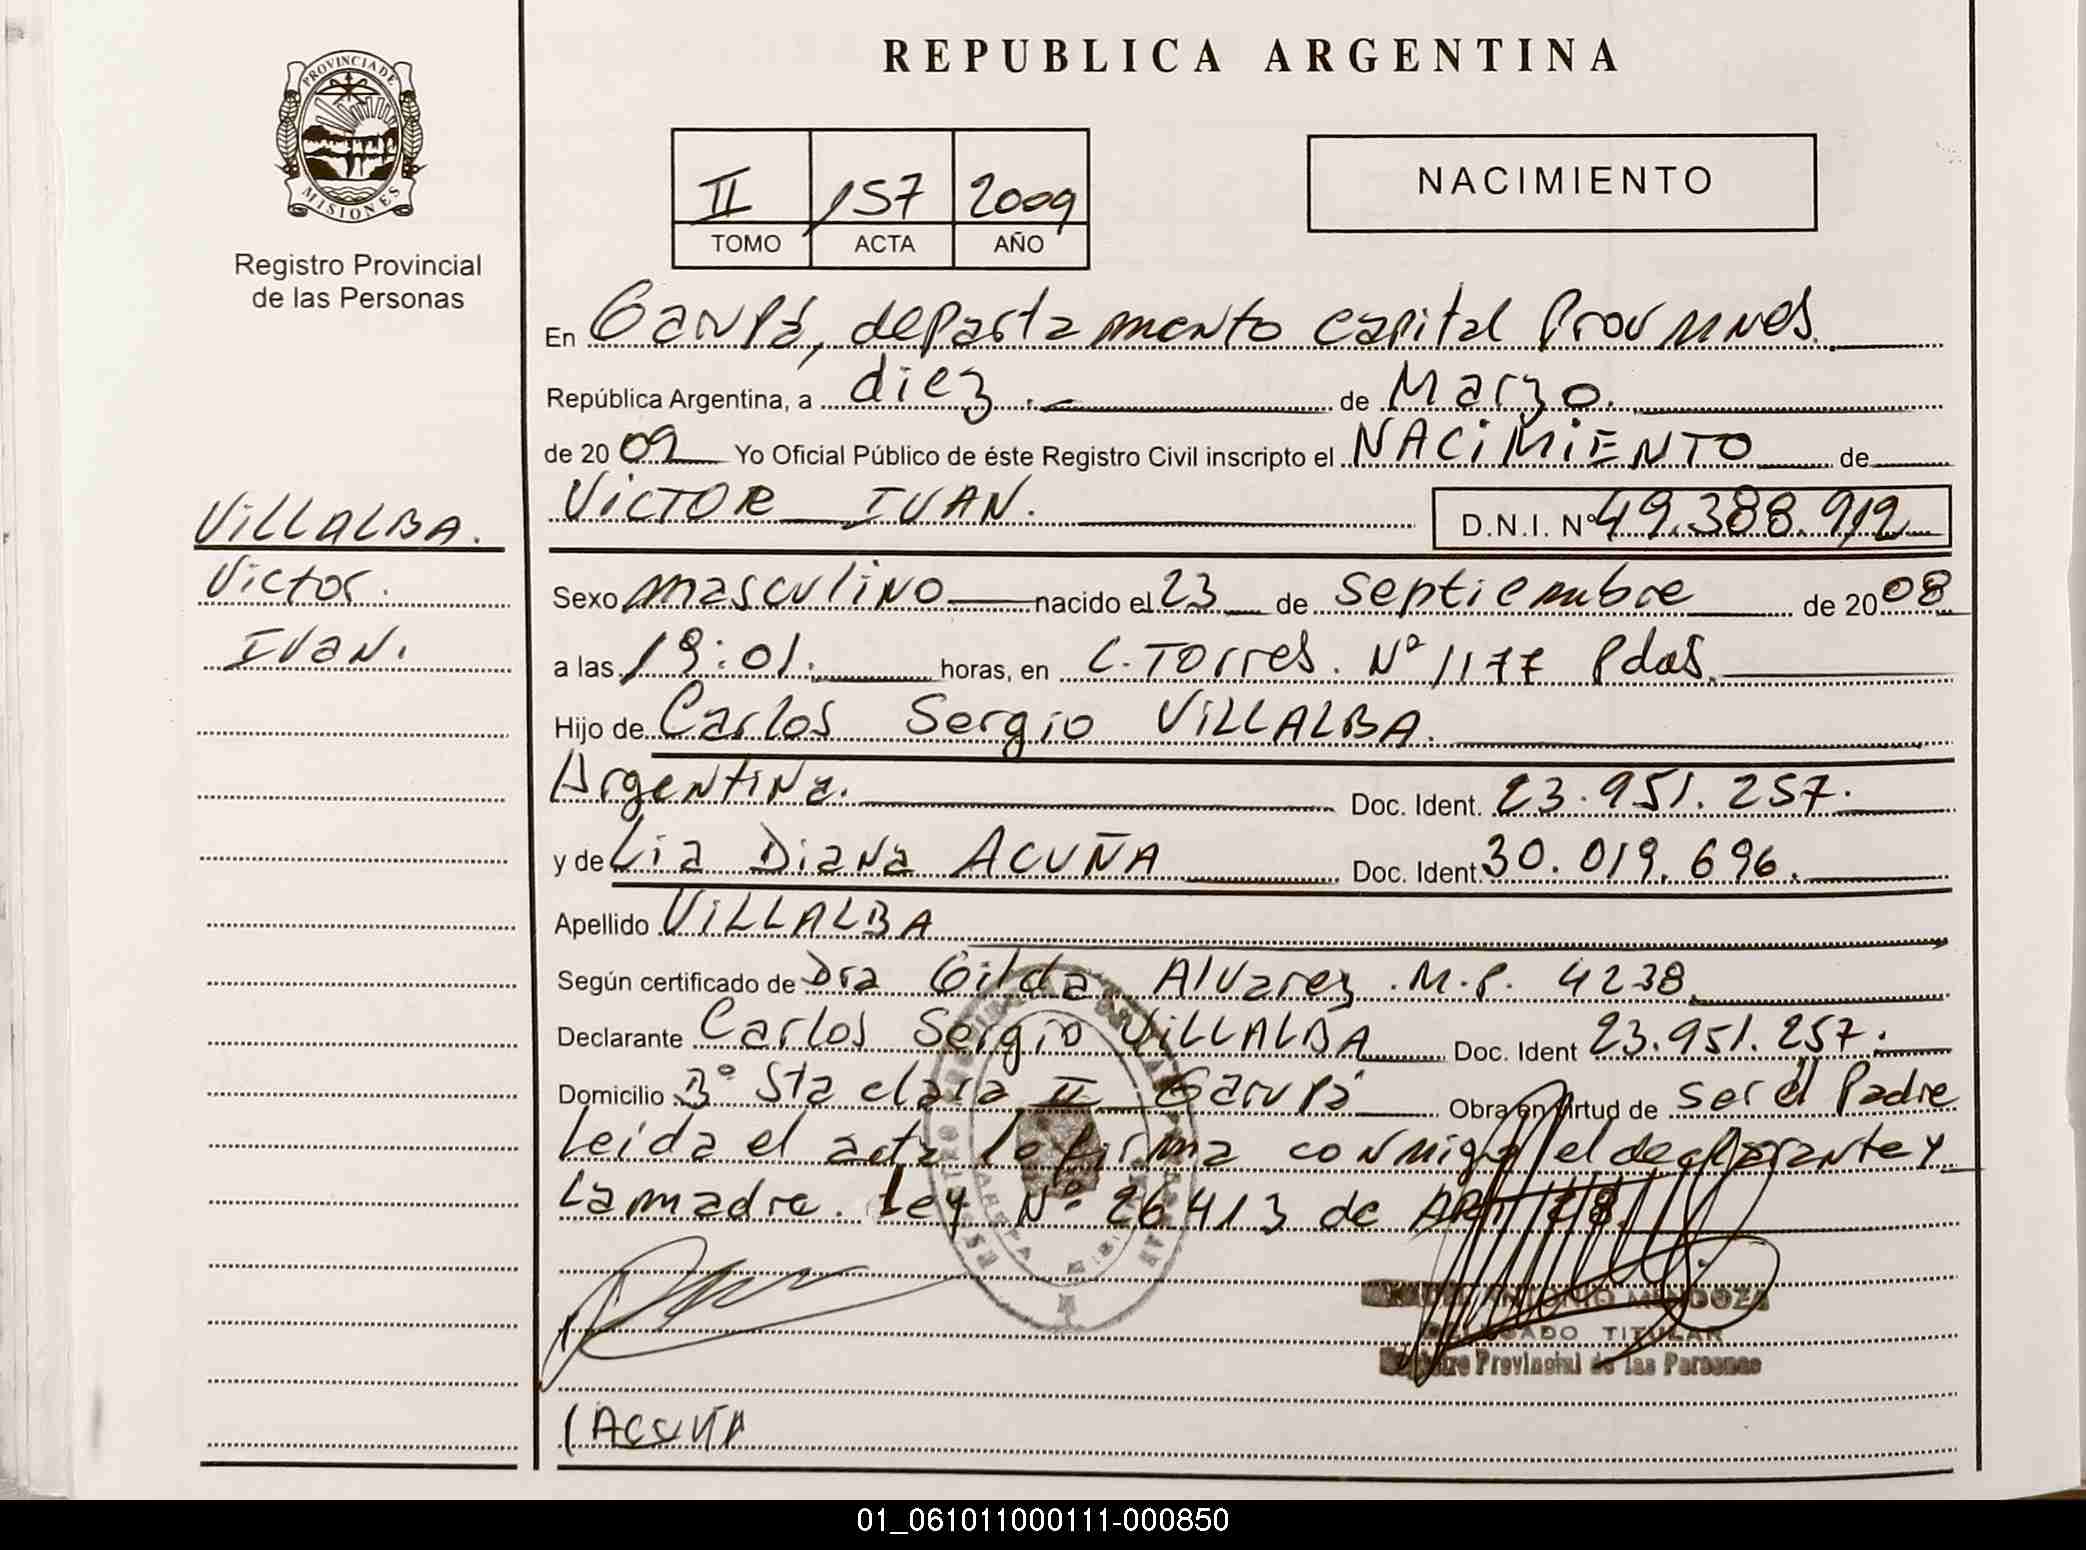 REPUBLICA ARGENTINA
PROVINCIA DE
MISIONES
Registro Provincial
de las Personas
II 157 2009
TOMO ACTA AÑO
NACIMIENTO
En Garupá, departamento capital Prov
República Argentina, a diez. de Marzo.
de 2009 Yo Oficial Público de éste Registro Civil inscripto el NACIMIENTO de
VICTOR IVAN. D.N.I. Nº 49.388.912
VILLALBA.
Victor.
Ivan.
Sexo masculino nacido el 23 de septiembre de 2008
a las 19:01. horas, en C. Torres. Nº 1177 Pdas.
Hijo de Carlos Sergio VILLALBA.
Argentina. Doc. Ident. 23.951.257.
y de Lia Diana ACUÑA Doc. Ident. 30.019.696.
Apellido VILLALBA
Según certificado de Dra Gilda Alvarez. M.P. 4238
Declarante Carlos Sergio VILLALBA Doc. Ident 23.951.257.
Domicilio Bº Sta clara II Garupá Obra en virtud de ser el Padre
Leida el acta la firma conmigo el declarante y
La madre. Ley Nº 26413 de ART 28.
ANTONIO MENDOZA
DELEGADO TITULAR
Registro Provincial de las Personas
ACUÑA
01_061011000111-000850